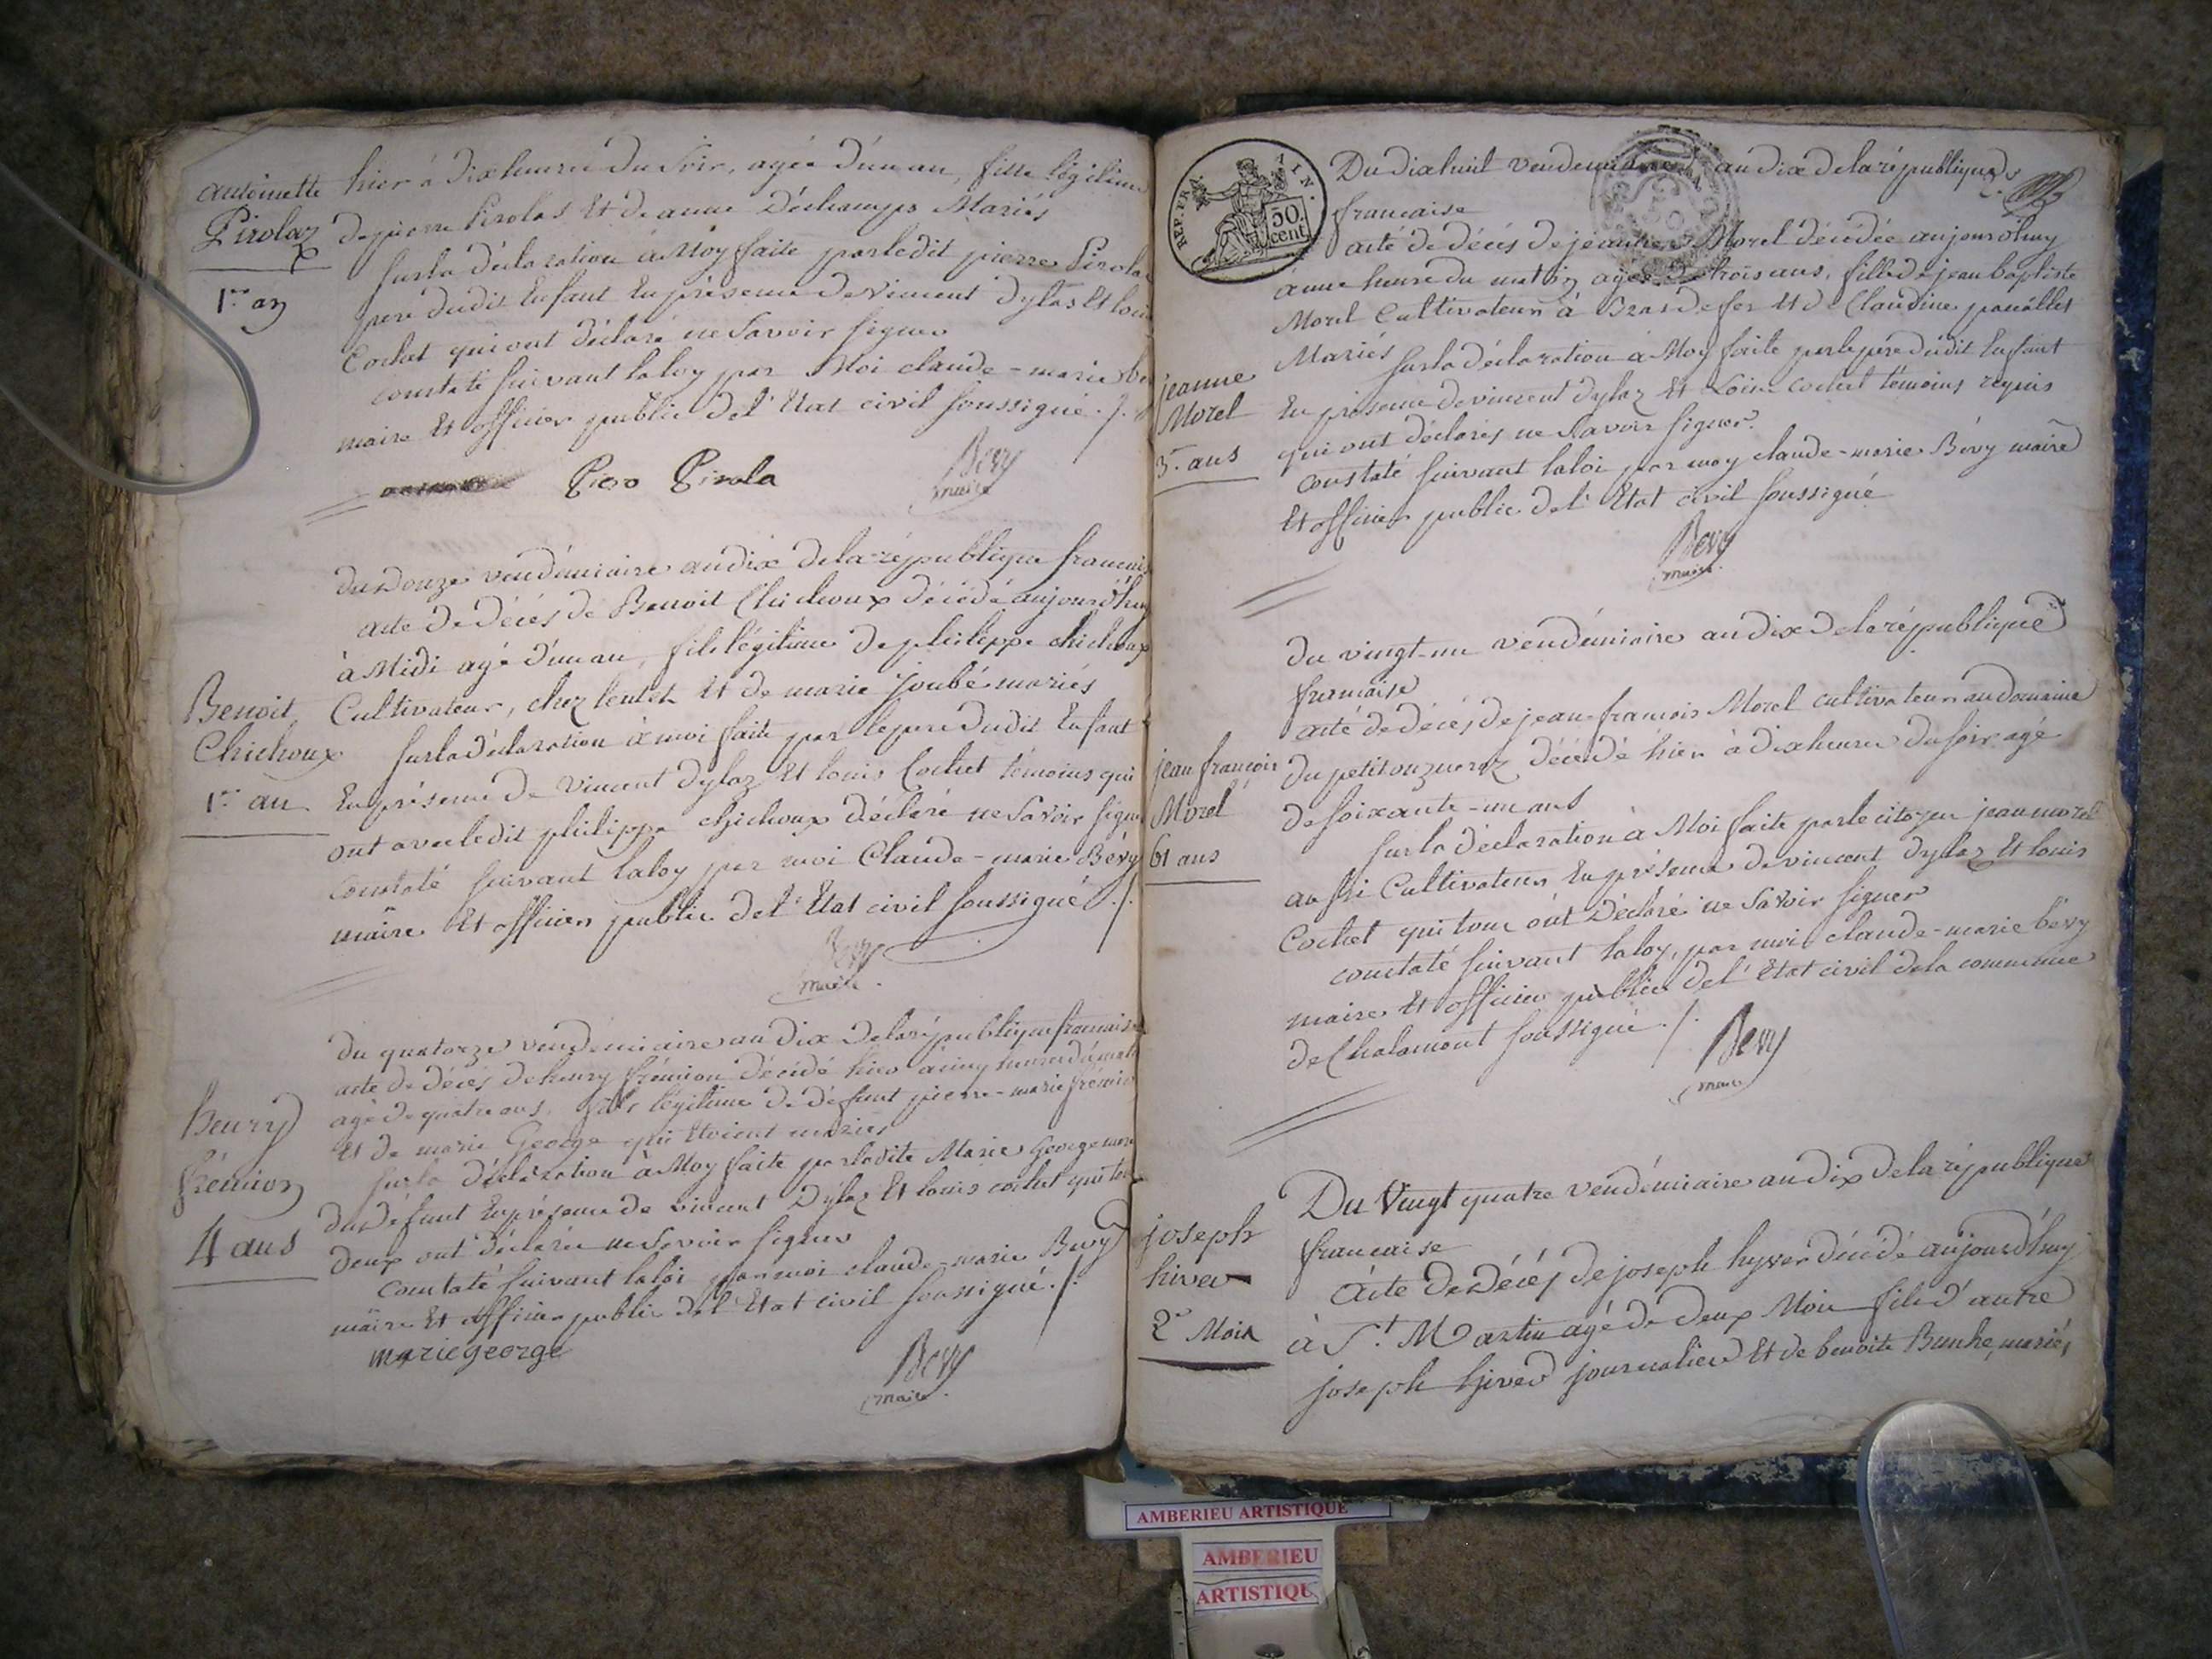 antoinette
Pirolaz
1.er an
hier à dix heures du soir, agée d'un an, fille légitime
de pierre Pirolas et de anne Déchamps Mariés
sur la déclaration à Moy faite par le dit pierre Pirolas
pere dudit Enfant En présence de vincent dylas Et loui
Cochet qui ont déclaré ne Savoir signer
constaté suivant la loy par Moi claude-marie be
maire Et officier public de l'Etat civil soussigné ./.
Piero Pirola
Bevy
maire
Benoit
Chichoux
1.er an
du Douze vendémiaire an dix de la république francais
acte de décés de Benoit Chichoux décédé aujourd'huy
à Midi agé d'un an, fils légitime de philippe chichoux
Cultivateur, chez teutet Et de marie joubé mariés
sur la déclaration à moi faite par le pere dudit Enfant
En présence de Vincent dylaz Et louis Cochet témoins qui
ont avec ledit philippe chichoux déclaré ne Savoir signe
Constaté suivant la loy par moi Claude-marie Bévy
maire Et officier public de l'Etat civil soussigné ./.
Bevy
maire.
henry
frémion
4 ans
du quatorze vendémiaire an dix de la république francaise
acte de décés de henry frémion décédé hier à cinq heures du matin
agé de quatre ans, fils légitime de défunt pierre-marie frémion
Et de marie George qui Etoient mariés
sur la déclaration à Moy faite par ladite Marie George mere
du défunt En présence de vincent Dylaz Et louis cochet qui tou
deux ont déclaré ne Savoir signer
Constaté suivant la loi par moi claude-marie Bevy
maire Et officier public de l'Etat civil soussigné ./.
marie george
Bevy
maire.
REP. FRA. AIN.
50.
cent.
Du dix huit vendemiaire an dix de la république
francaise
acté de décés de jeanne Morel décédée aujourd'huy
à une heure du matin agée de trois ans, fille de jean baptiste
Morel Cultivateur à Bras de fer Et de Claudine
Mariés
jeanne
Morel
3.- ans
sur la déclaration à Moy faite par le pére dudit Enfant
En présence de vincent dylaz Et Louis cochet témoins requis
qui ont déclarés ne Savoir signer
constaté suivant la loi par moy claude-marie Bévy maire
Et officier public de l'Etat civil soussigné
Bevy
maire.
du vingt-un vendémiaire an dix de la république
francaise
jean françois
Morel
61 ans
acte de décés de jean-francois Morel cultivateur au domaine
du petit décédé hier à dix heures du soir agé
de soixante-un ans
sur la déclaration à Moi faite par le citoyen jean morel
aussi Cultivateur En présence de vincent dylaz Et louis
Cochet qui tous ont Déclaré ne Savoir signer
constaté suivant la loy, par moi claude-marie bévy
maire Et officier public de l'Etat civil de la commune
de Chalamont soussigné ./.
Bevy
maire
joseph
hiver
2.e Mois
Du Vingt quatre vendémiaire an dix de la république
francaise
Acte de décés de joseph hyver décédé aujourd'huy
à S.t Martin agé de deux Mois fils d'autre
joseph hjver journalier Et de benoite Bunhe, mariés
AMBERIEU ARTISTIQUE
AMBERIEU
ARTISTIQU